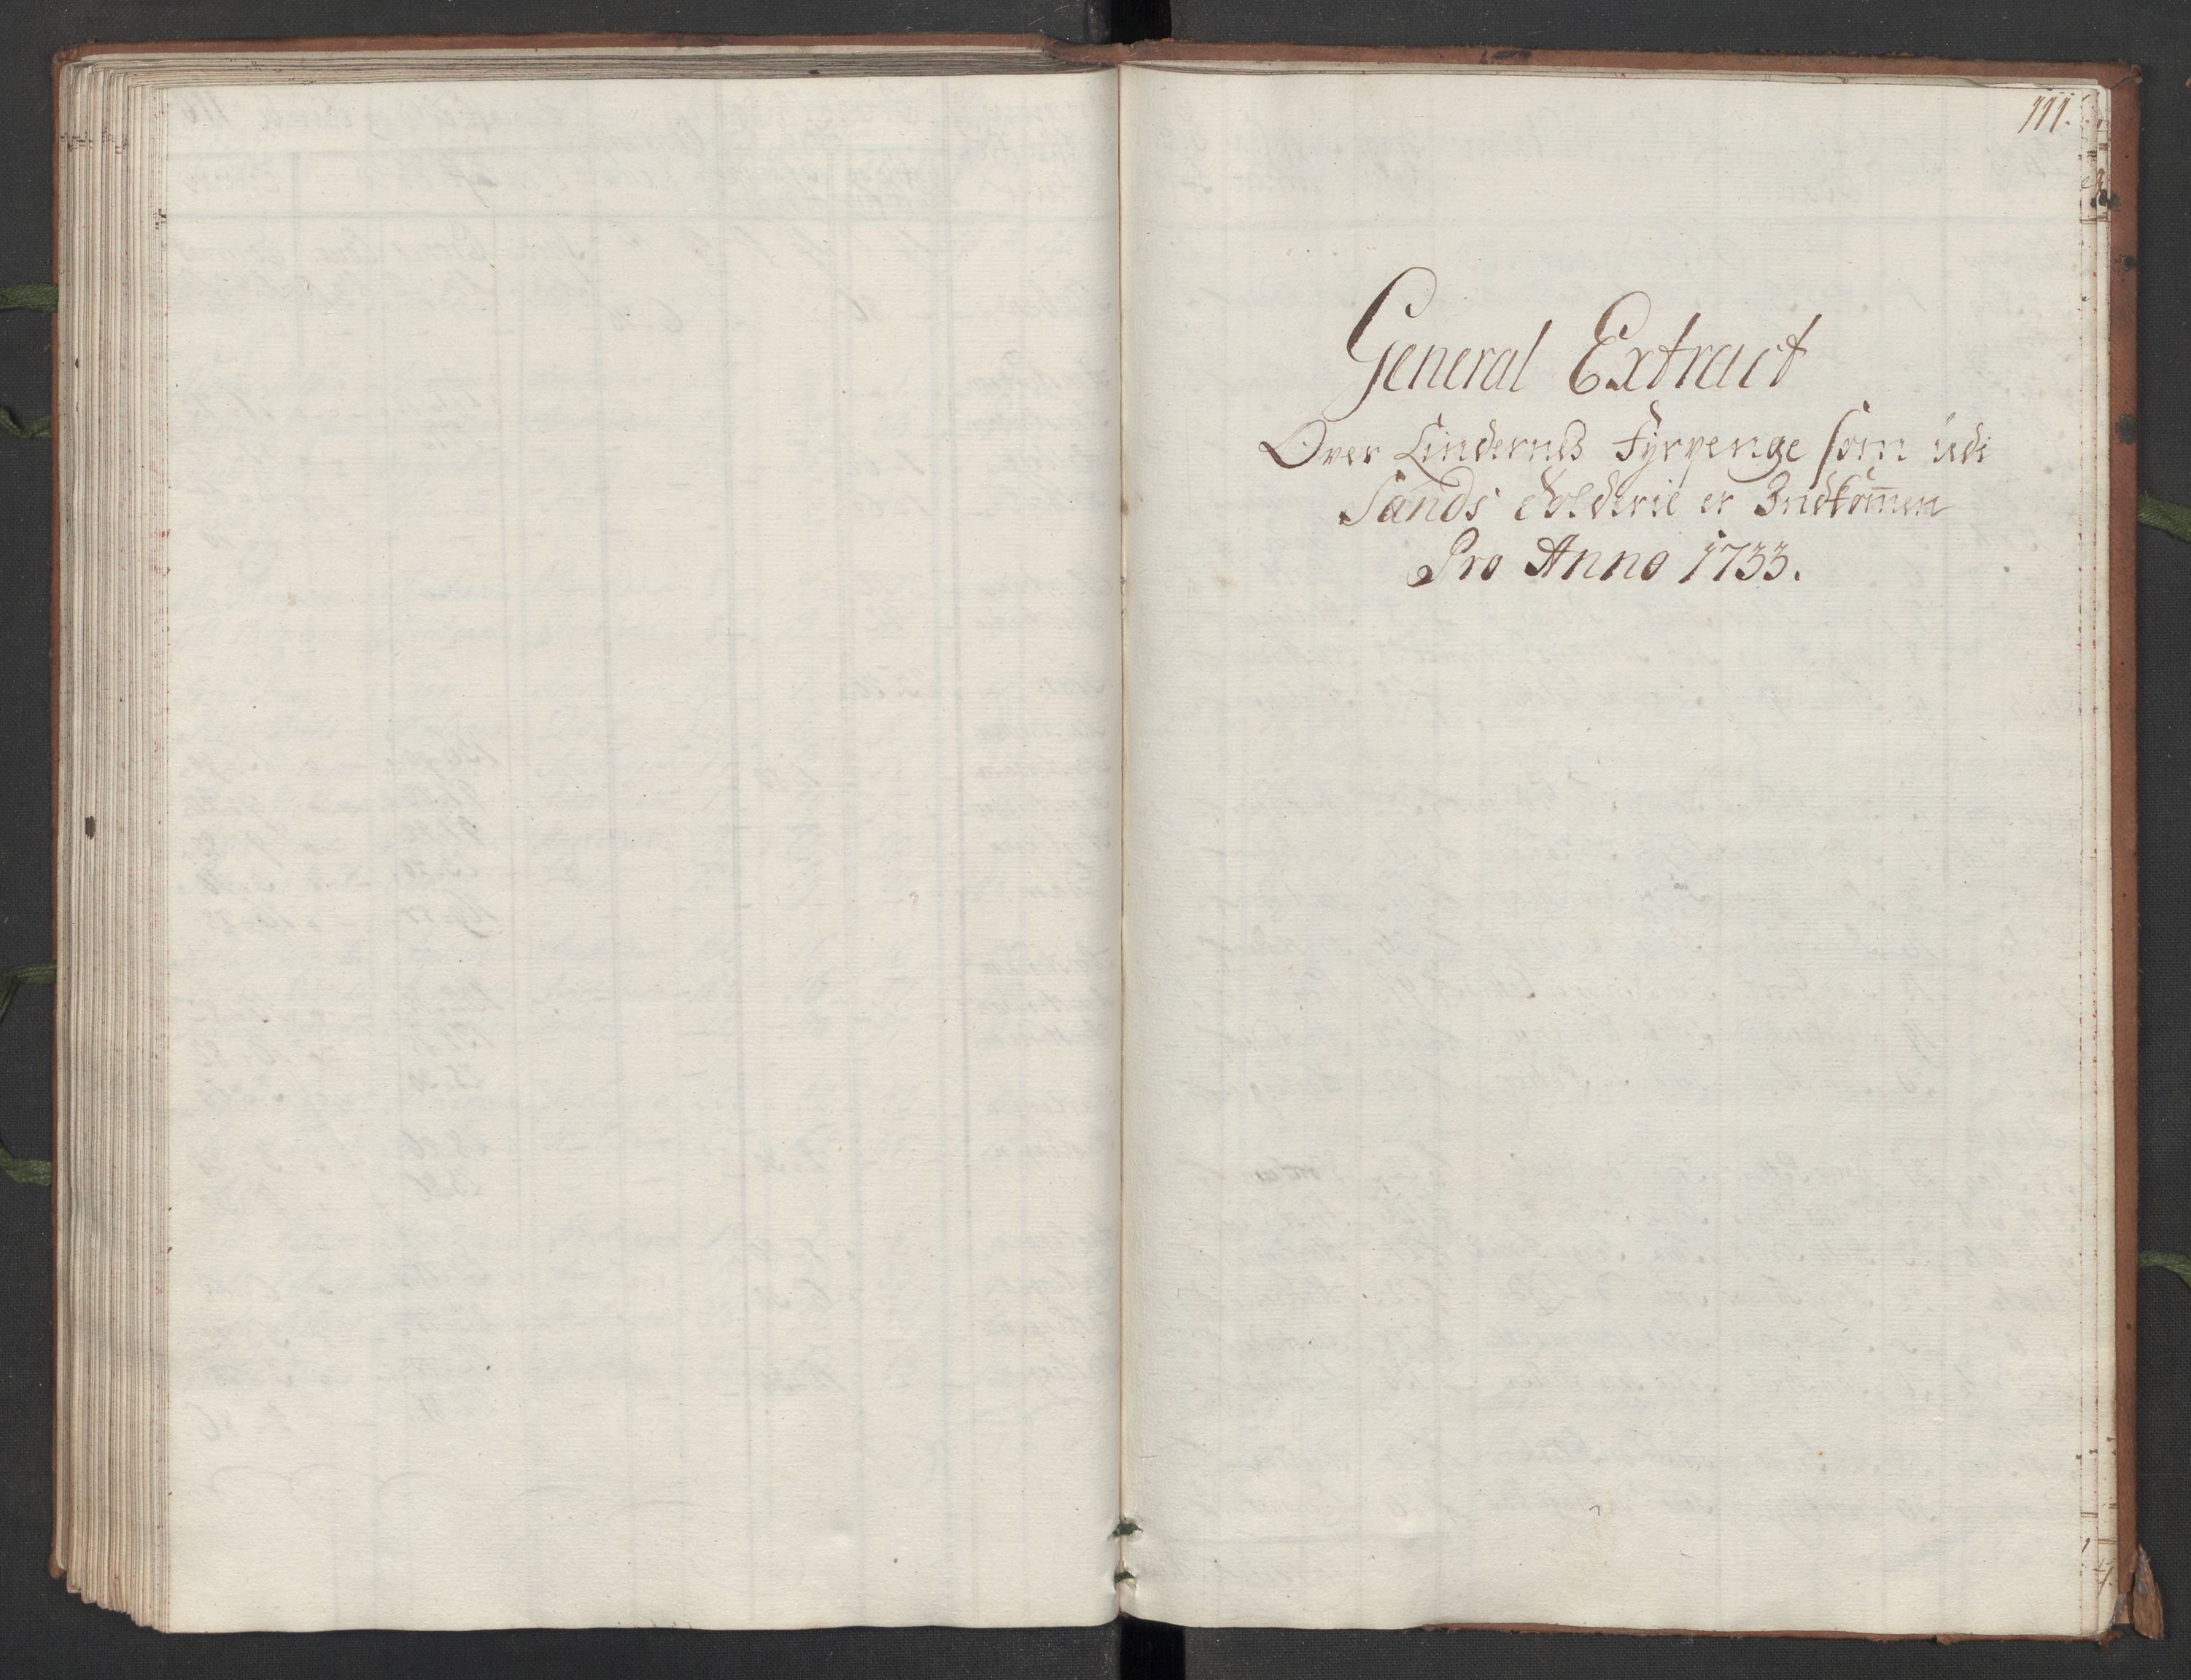 111.
General Extract
Over Lindernes Fyrpenge som udi
Sands Tolderie er Indkom̅en
Pro Anno 1733.